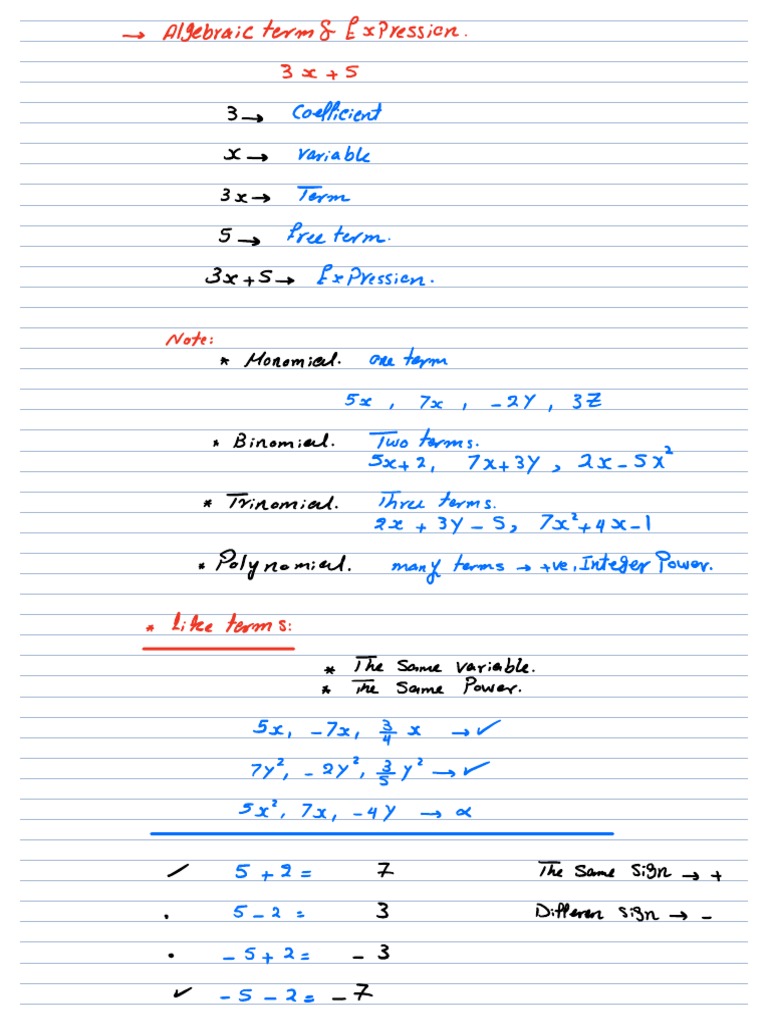 → Algebraic term & Expression.
3x + 5
3 → Coefficient
x → variable
3x → Term
5 → Free term.
3x + 5 → Expression.
Note:
* Monomial. one term
5x , 7x , -2Y , 3Z
* Binomial. Two terms.
5x+2, 7x+3Y , 2x-5x²
* Trinomial. Three terms.
2x + 3Y - 5, 7x²+4x-1
* Polynomial. many terms → +ve, Integer Power.
* Like terms:
* The Same variable.
* The Same Power.
5x, -7x, 3/4 x → ✓
7Y², -2Y², 3/5 Y² → ✓
5x², 7x, -4Y → α
✓ 5 + 2 = 7 The Same Sign → +
• 5 - 2 = 3 Differen Sign → -
• -5 + 2 = -3
✓ -5 - 2 = -7